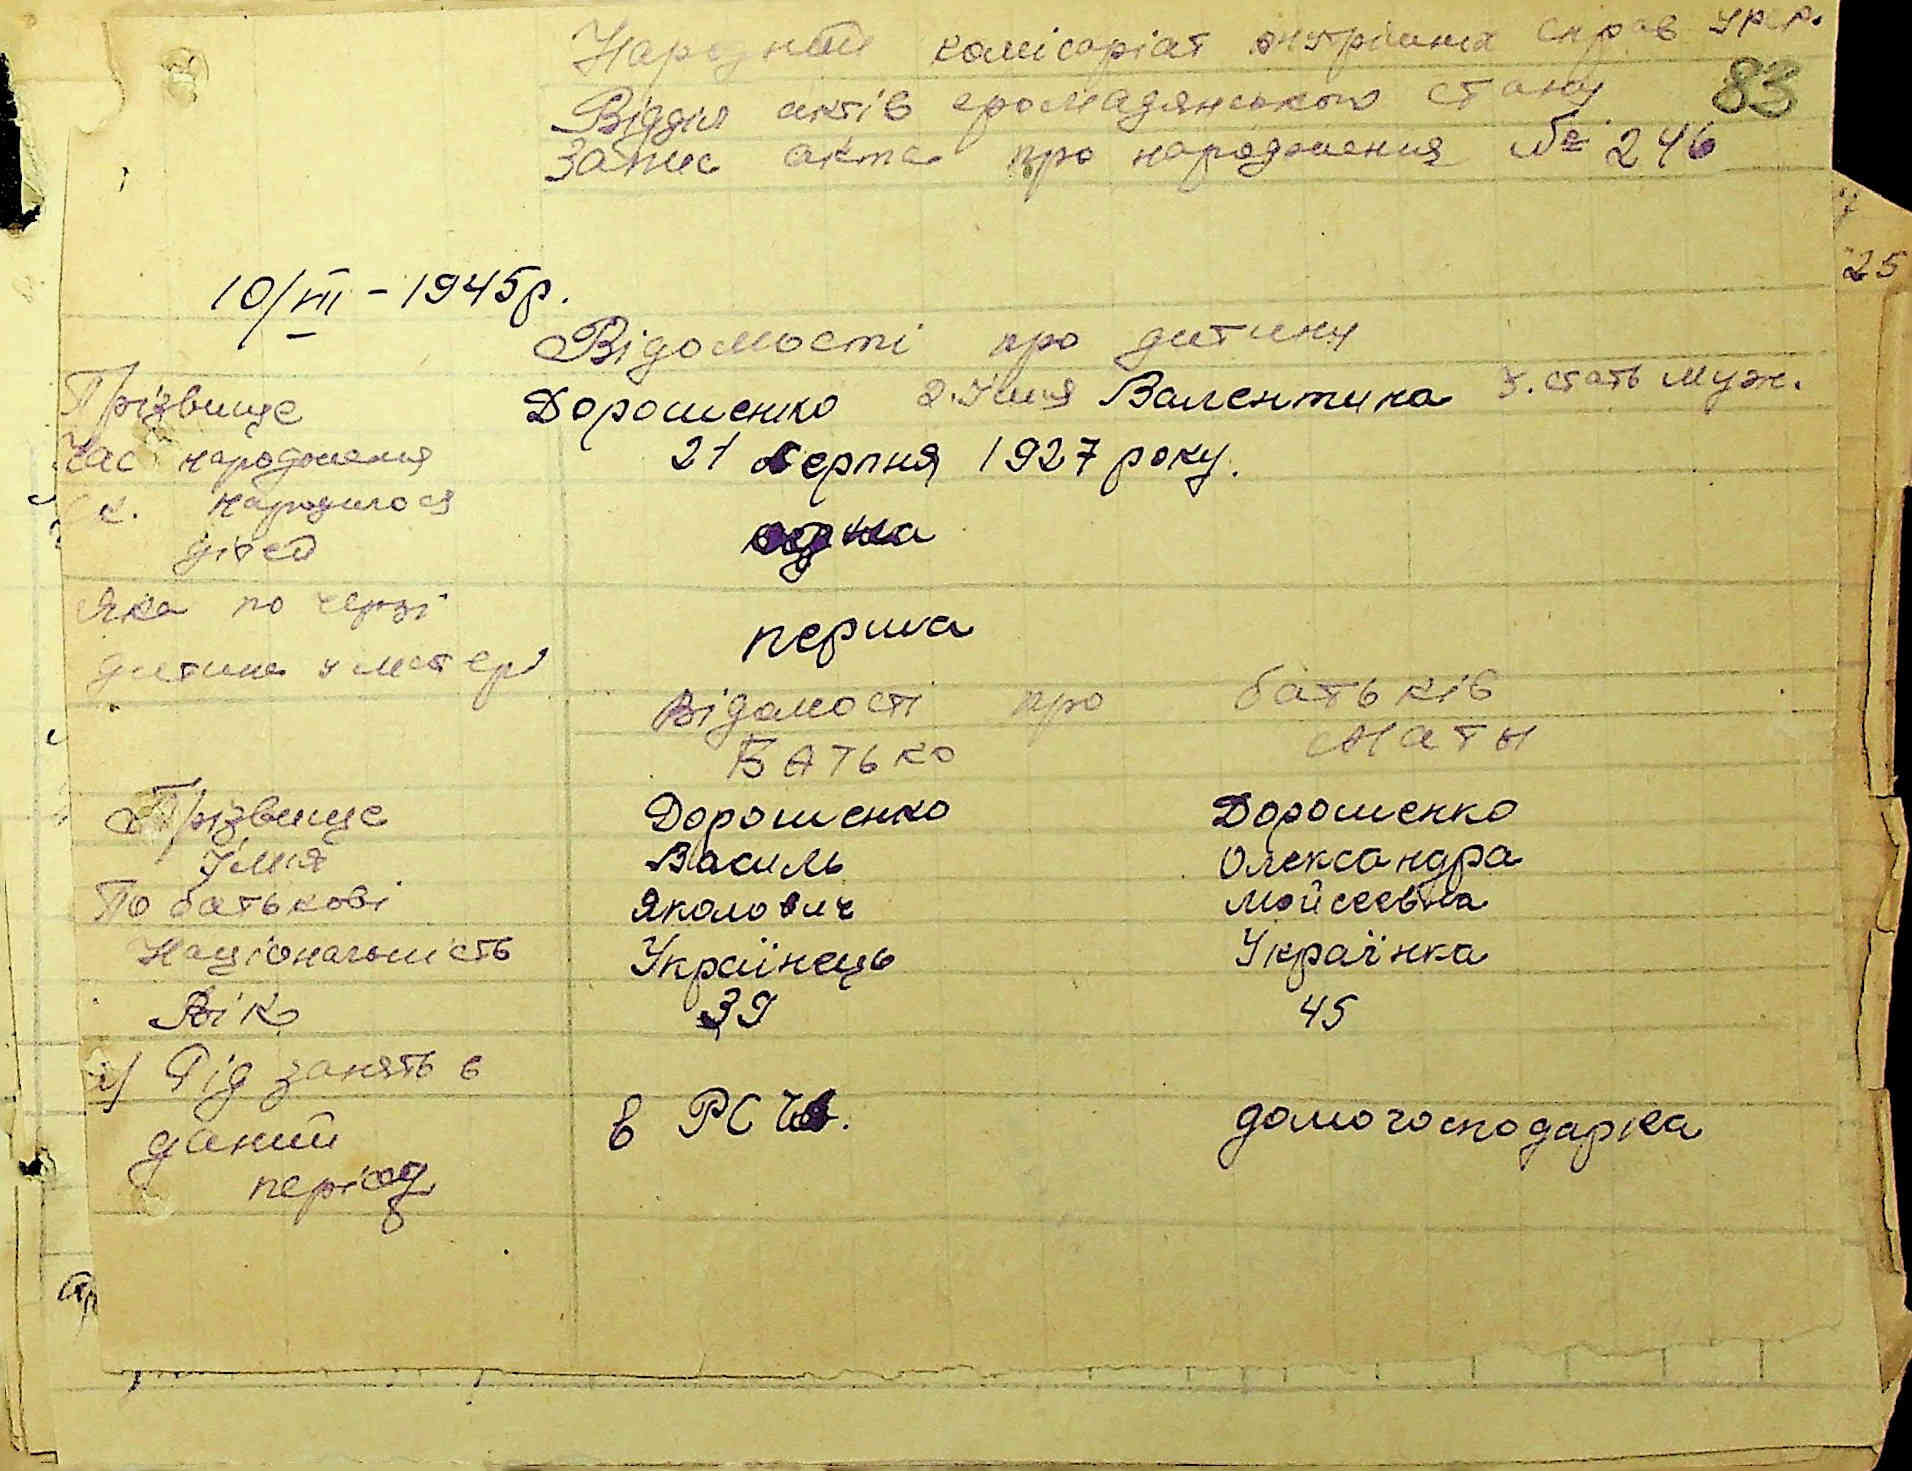 Народній комісаріат внутрішніх справ УРСР.
83
Відділ актів громадянського стану
Запис акта про народження № 246
25
10/III - 1945р.
Відомості про дитину
Прізвище Дорошенко 2. Імя Валентина 3. стать муж.
Час народження 21 серпня 1927 року.
ск. народилося
дітей одна
Яка по черзі
перша
дитина у матері
Відомості про батьків
Батько Мати
Прізвище Дорошенко Дорошенко
Імя Василь Олександра
По батькові Яколович Мойсеевна
Національність Українець Українка
Вік 39 45
а) Рід занять в
даний в РСЧА. домогосподарка
період